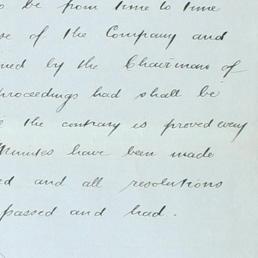 be from time to time
se of the Company and
ned by the Chairman of
proceedings had shall be
the contrary is proved every
Minutes have been made
ed and all resolutions
passed and had.